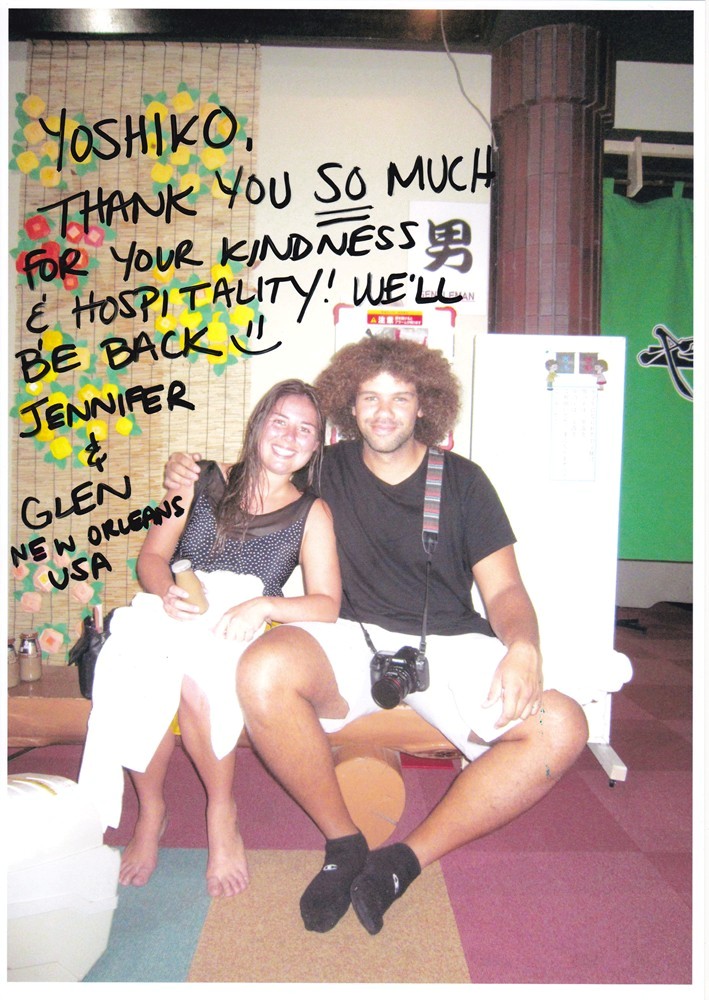 YOSHIKO,
THANK YOU SO MUCH
FOR YOUR KINDNESS
& HOSPITALITY! WE'LL
BE BACK
JENNIFER
&
GLEN
NEW ORLEANS
USA
男
GENTLEMAN
注意